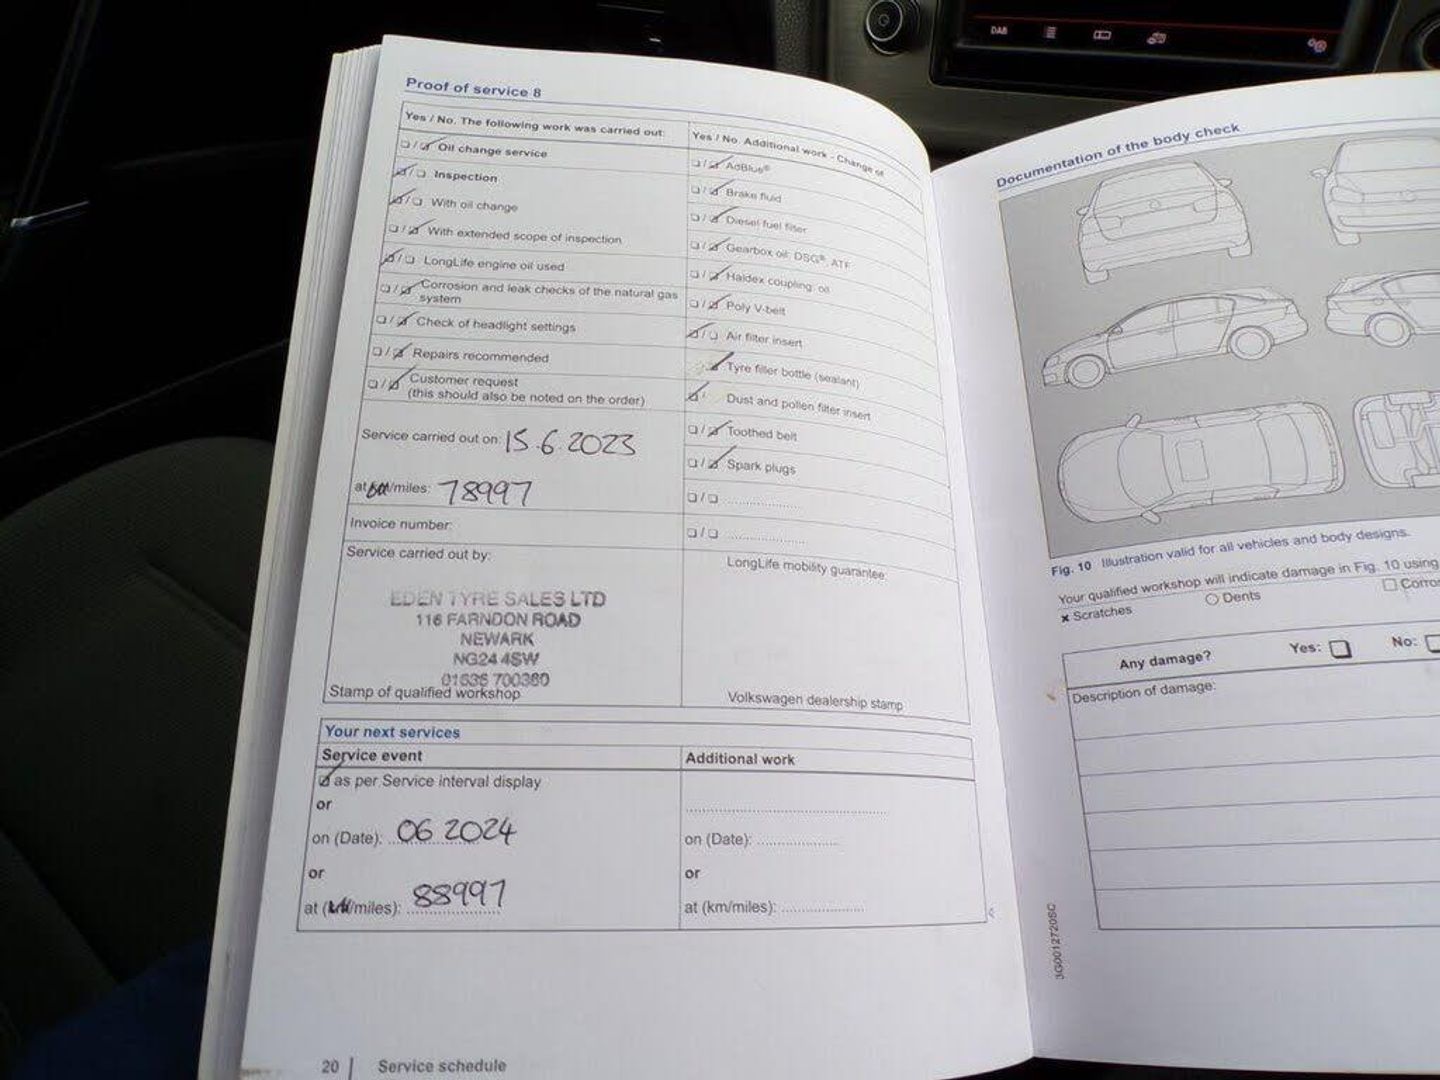 DAB
Proof of service 8
Yes / No. The following work was carried out:
Oil change service
Inspection
With oil change
With extended scope of inspection
LongLife engine oil used
Corrosion and leak checks of the natural gas
system
Check of headlight settings
Repairs recommended
Customer request
(this should also be noted on the order)
Service carried out on: 15.6.2023
at km/miles: 78997
Invoice number:
Service carried out by:
EDEN TYRE SALES LTD
116 FARNDON ROAD
NEWARK
NG24 4SW
01636 700380
Stamp of qualified workshop
Yes / No. Additional work - Change of
AdBlue®
Brake fluid
Diesel fuel filter
Gearbox oil: DSG®, ATF
Haldex coupling: oil
Poly V-belt
Air filter insert
Tyre filler bottle (sealant)
Dust and pollen filter insert
Toothed belt
Spark plugs
LongLife mobility guarantee:
Volkswagen dealership stamp
Your next services
Service event
as per Service interval display
or
on (Date): 06 2024
or
at (km/miles): 88997
Additional work
on (Date):
or
at (km/miles):
20 | Service schedule
Documentation of the body check
Fig. 10 Illustration valid for all vehicles and body designs.
Your qualified workshop will indicate damage in Fig. 10 using
x Scratches
Dents
Any damage?
Yes:
No:
Description of damage:
3G0012720SC